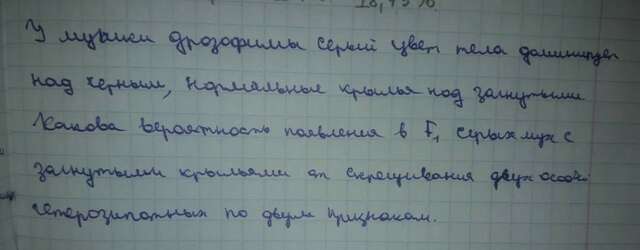 18,75%.
У мушки дрозофилы серый цвет тела доминирует
над черным, нормальные крылья над загнутыми
Какова вероятность появления в F₁ серых мух с
загнутыми крыльями от скрещивания двух особей
гетерозиготных по двум признакам.